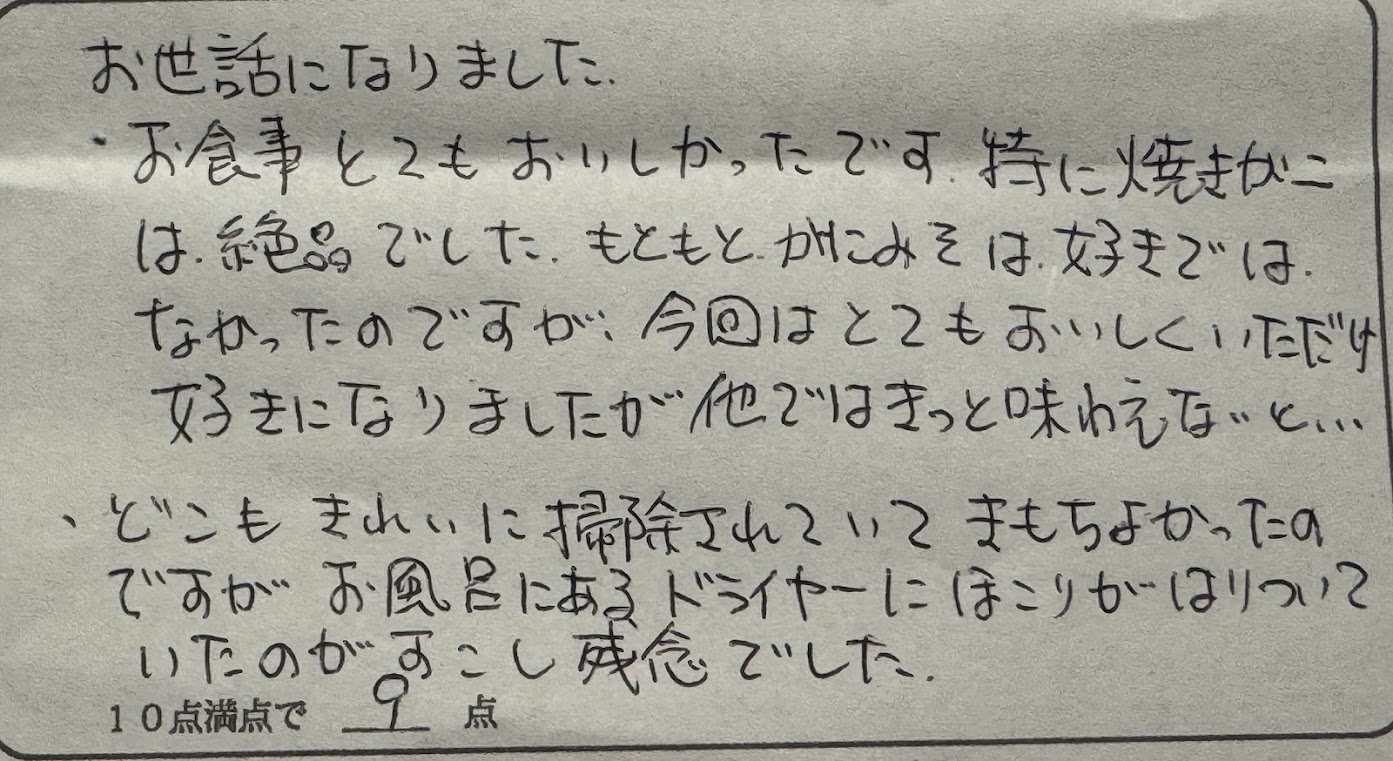 お世話になりました.
・お食事とてもおいしかったです.特に焼きがに
は.絶品でした.もともと.かにみそは.好きでは.
なかったのですが、今回はとてもおいしくいただけ
好きになりましたが他ではきっと味わえないと...
、どこもきれいに掃除されていてきもちよかったの
ですがお風呂にあるドライヤーにほこりがはりついて
いたのがすこし残念でした.
10点満点で 9 点